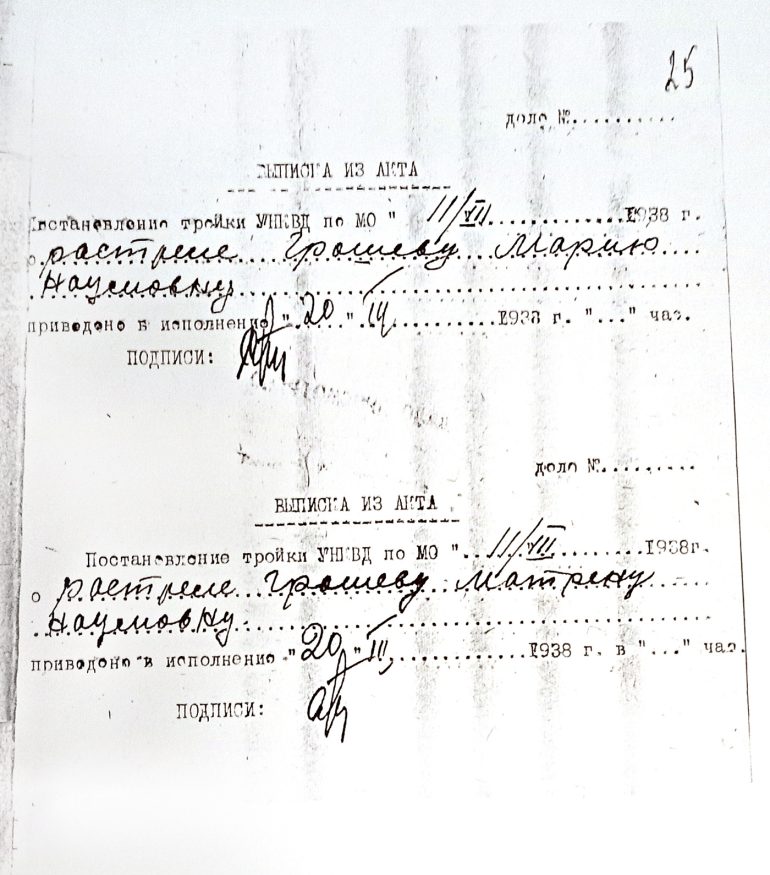 25
дело №..........
ВЫПИСКА ИЗ АКТА
Постановление тройки УНКВД по МО " 11/VII..............1938 г.
о растреле Грошеву Марию
Наумовну
приведено в исполнение " 20 " III..........1938 г. "..." час.
ПОДПИСИ:
дело №..........
ВЫПИСКА ИЗ АКТА
Постановление тройки УНКВД по МО " 11/VII..........1938г.
о растреле Грошеву Матрену
Наумовну
приведено в исполнение "20" III,............1938 г. в "..." час.
ПОДПИСИ: